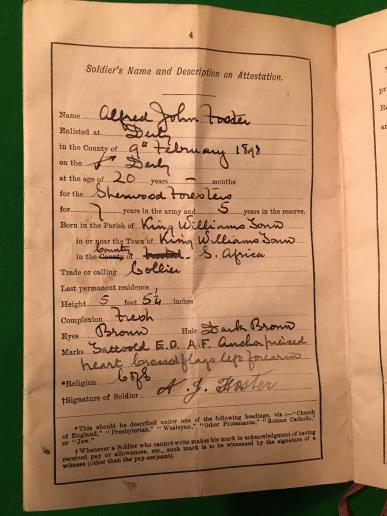 4
Soldier's Name and Description on Attestation.
Name Alfred John Foster
Enlisted at Derby
in the County of 9th February 1898
on the Derby
at the age of 20 years – months
for the Sherwood Foresters
for 7 years in the army and 5 years in the reserve.
Born in the Parish of King Williams Town
in or near the Town of King Williams Town
in the County of S. Africa
Trade or calling Collier
Last permanent residence
Height 5 feet 5¼ inches
Complexion Fresh
Eyes Brown Hair Dark Brown
Marks Tattooed E.D. A.F. Anchor pierced
heart crossed flags left forearm
*Religion C of E
†Signature of Soldier A. J. Foster
* This should be described under one of the following headings, viz.:—"Church
of England," "Presbyterian," "Wesleyan," "Other Protestants," "Roman Catholic,"
or "Jew."
† Whenever a Soldier who cannot write makes his mark in acknowledgment of having
received pay or allowances, etc., such mark is to be witnessed by the signature of a
witness (other than the pay-serjeant).